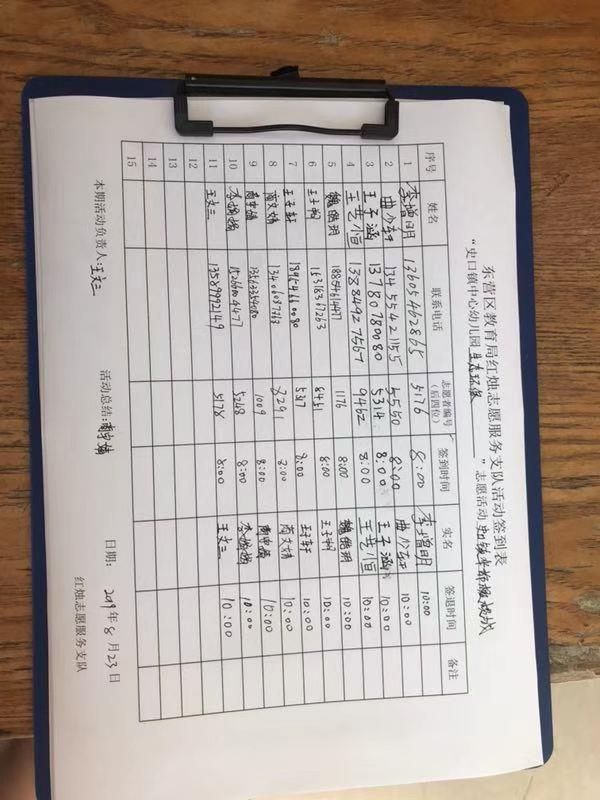 东营区教育局红烛志愿服务支队活动签到表
“史口镇中心幼儿园 生态环保 ”志愿活动
序号 姓名 联系电话 志愿者编号（后四位） 签到时间 实名 签退时间 备注
1 李增明 13605462865 5176 8:00 李增明 10:00
2 曲少轩 13455421155 5550 8:00 曲少轩 10:00
3 王子涵 13780780080 5314 8:00 王子涵 10:00
4 王艺恒 13884927567 9462 8:00 王艺恒 10:00
5 魏晓玥 18854614977 1176 8:00 魏晓玥 10:00
6 15318361263 8451 8:00 10:00
7 王子轩 5317 8:00 王子轩 10:00
8 商文婧 13406087763 3291 8:00 商文婧 10:00
9 13563359080 1069 8:00 10:00
10 李婉婧 15266004477 5248 8:00 李婉婧 10:00
11 王文三 13589992149 578 8:00 王文三 10:00
12
13
14
15
本期活动负责人：王文三 活动总结： 日期： 2019年8月23日
红烛志愿服务支队